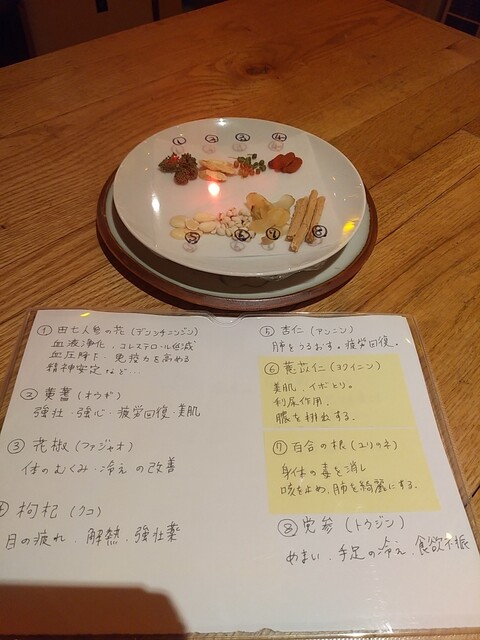 ① ② ③ ④
⑤ ⑥ ⑦ ⑧
① 田七人参の花 (デンシチニンジン)
血液浄化・コレステロール低減
血圧降下・免疫力を高める
精神安定など…
② 黄蓍 (オウギ)
強壮・強心・疲労回復・美肌
③ 花椒 (ファジャオ)
体のむくみ・冷えの改善
④ 枸杞 (クコ)
目の疲れ、解熱、強壮薬
⑤ 杏仁 (アンニン)
肺をうるおす。疲労回復。
⑥ 薏苡仁 (ヨクイニン)
美肌、イボとり。
利尿作用、
膿を排出する。
⑦ 百合の根 (ユリのネ)
身体の毒を消し
咳を止め、肺を綺麗にする。
⑧ 党参 (トウジン)
めまい、手足の冷え、食欲不振